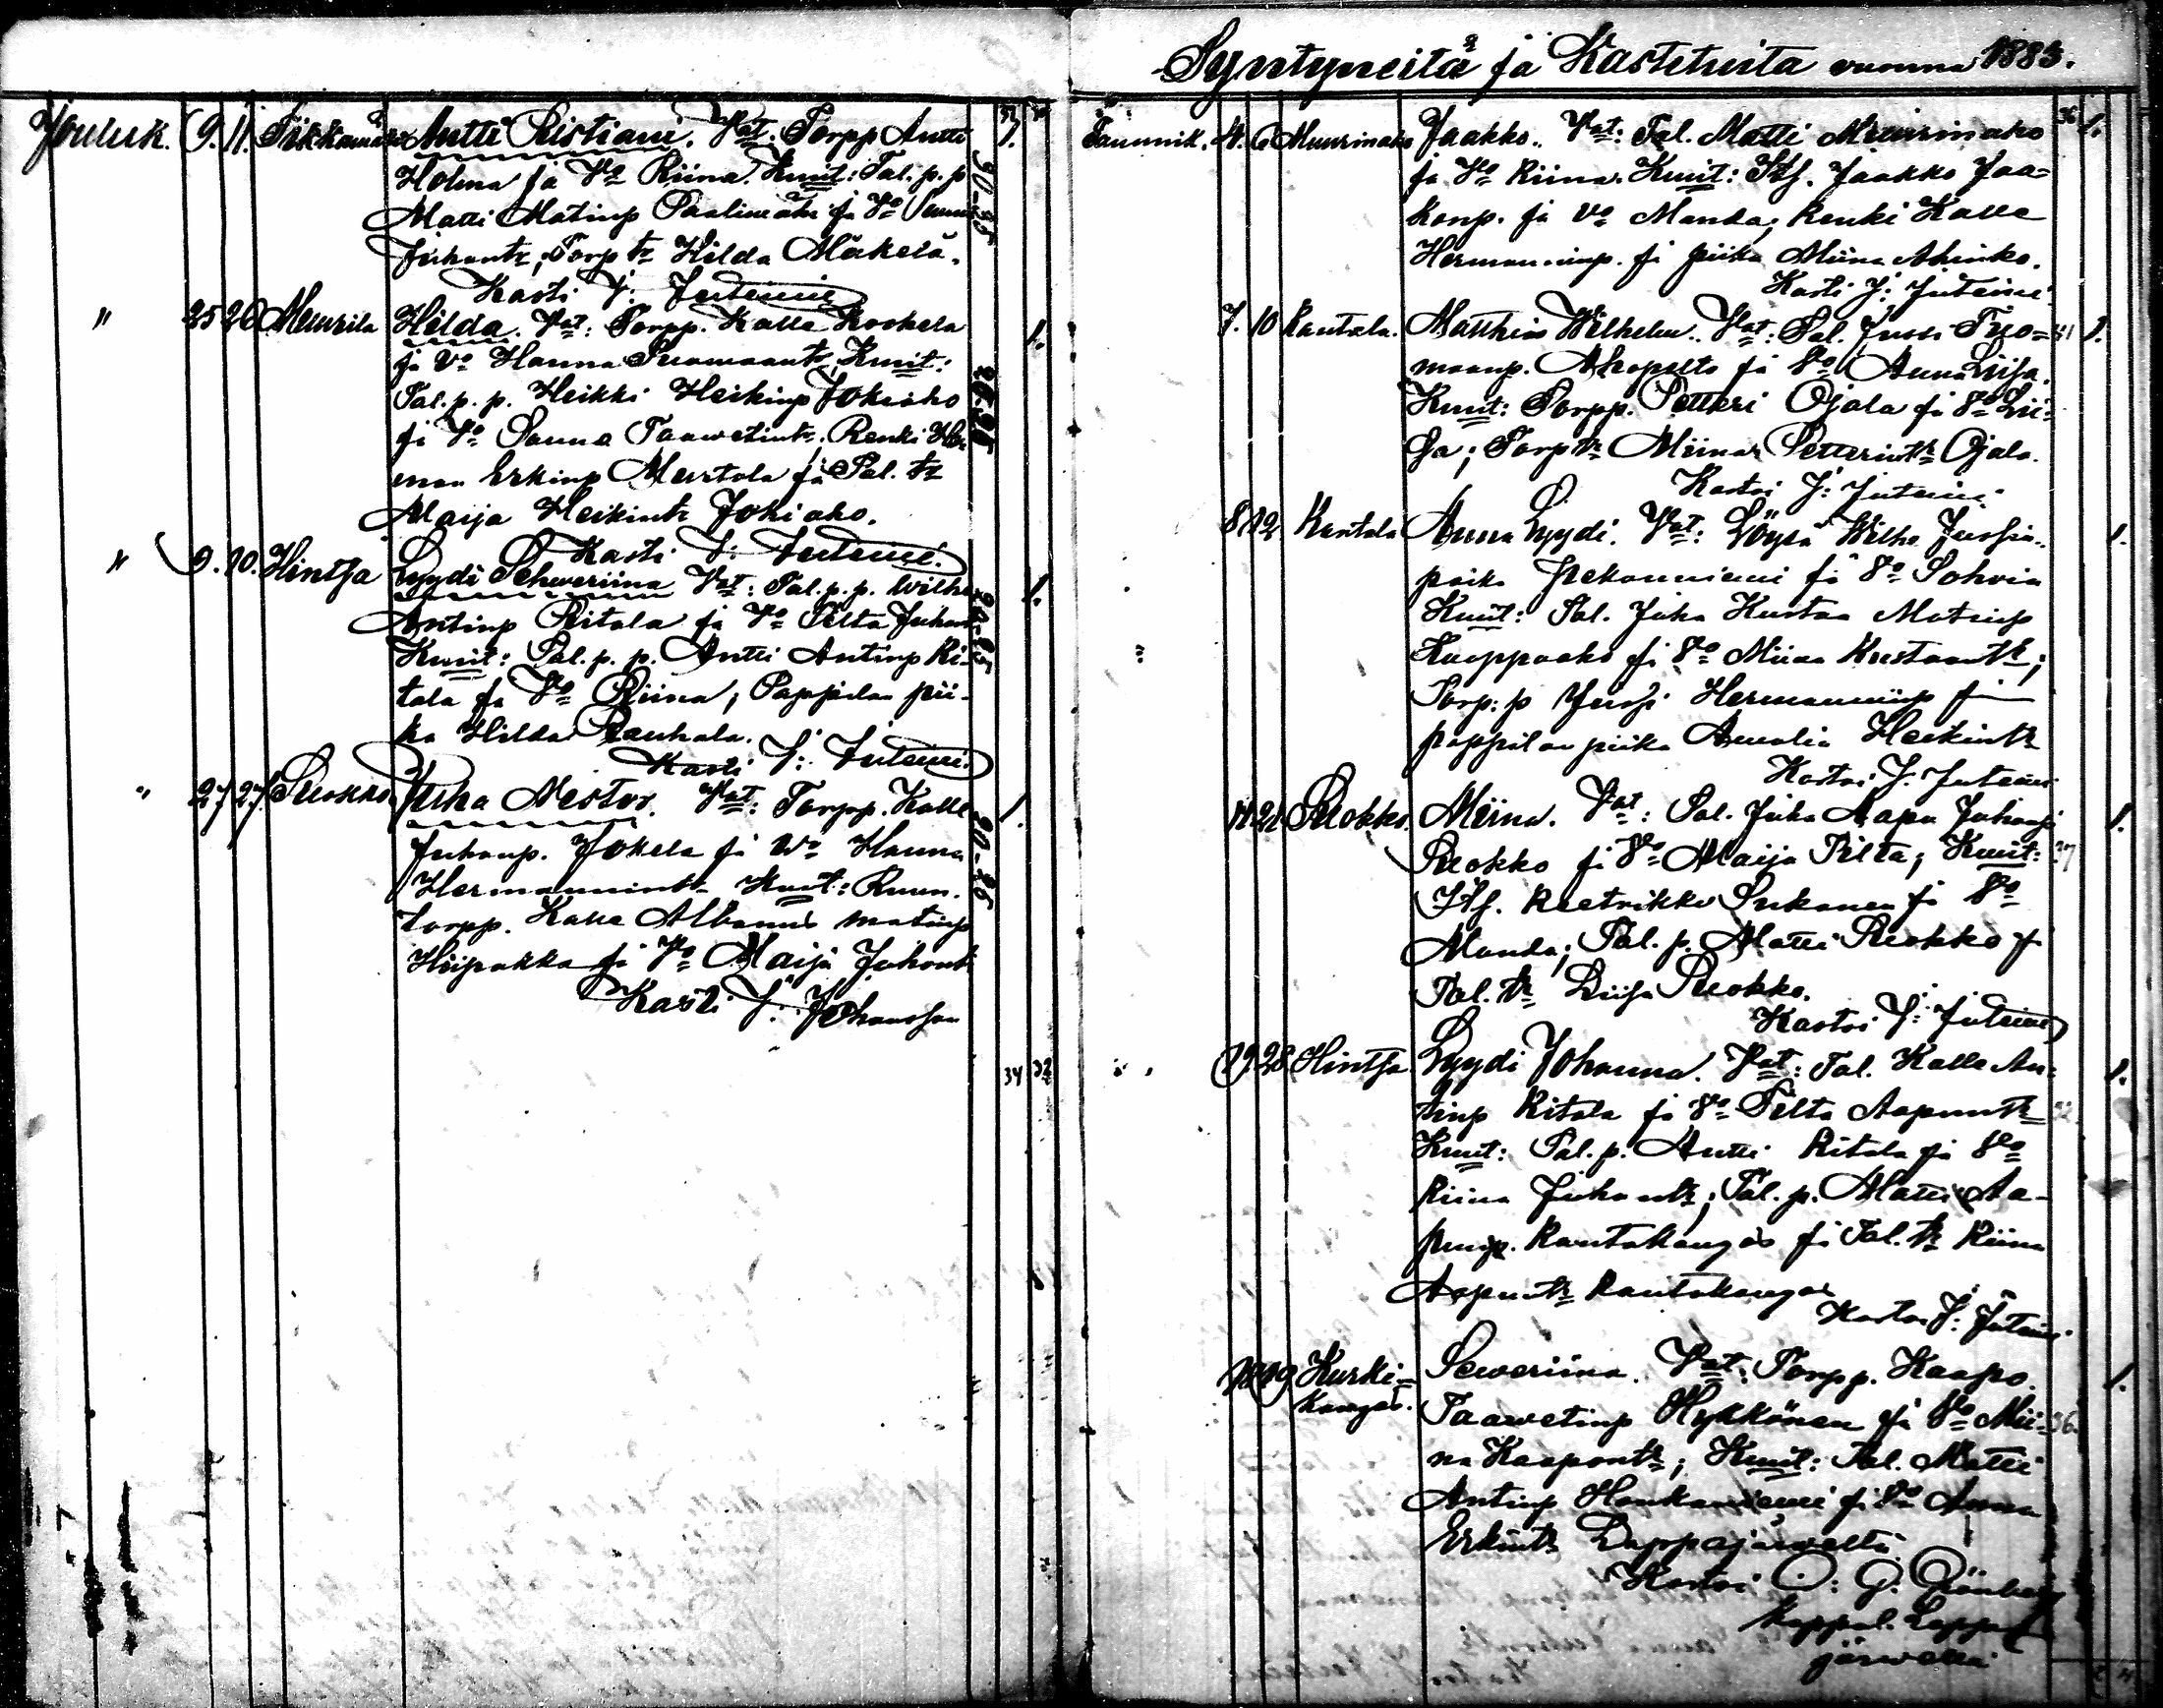 Jouluk. 9. 11. Antti Kristiani. Vat. Torpp Antti
Holma ja Vo Riina. Kmit: Tal. p. p
Matti Matinp ja Vo
Juhantr, Torp tr Hilda Mäkelä.
Kasti J: Juteini
" 25 26 Meurila Hilda. Vat: Torpp. Kalle Koskela
ja Vo Hanna Kmit:
Tal. p. p. Heikki Heikinp Jokiaho
ja Vo Sanna Taawetintr, Renki Her-
man Erkinp Murtola ja Tal. tr
Maija Heikintr Jokiaho.
Kasti J: Juteini.
" 9. 10. Hintsa Lyydi Vat: Tal. p. p. Wilhe
Antinp Ritala ja Vo Tilta Juhan
Kmit: Tal. p. p. Antti Antinp Ri-
tala ja Vo Riina; Pappilan pii-
ka Hilda Rauhala.
Kasti J: Juteini.
" 27 27 Puokko Juha Nestor. Vat: Torpp. Kalle
Juhanp. Jokela ja Wo Hanna
Hermannintr Kmit:
torpp. Kalle Albanus Matinp
Hiipakka ja Vo Maija Juhontr
Kasti J. Johansson
34 32
Syntyneitä ja Kastetuita vuonna 1883.
Tammik. 4. 6 Muurinaho Jaakko. Vat: Tal. Matti Muurinaho
ja Vo Riina. Kmit: Its. Jaakko Jaa-
konp. ja Vo Manda; Renki Kalle
Hermanninp. ja piika Miina Ahinko.
Kasti J: Juteini
7. 10 Rantala. Matthias Wilhelm. Vat: Tal. Jussi Tuo-
maanp. Ahopelto ja Vo Anna Liisa.
Kmit: Torpp. Petteri Ojala ja Vo Lii-
sa; Torp tr Miina Petterintr Ojala.
Kastoi J: Juteini
8 12 Rantala Anna Lyydi. Vat: Löysä Wilhe Jussin-
poika ja Vo Sohvia
Kmit: Tal. Juha Kustaa Matinp
Kaappaaho ja Vo Miina Kustaantr;
Torp. p Jussi Hermanninp ja
pappilan piika Amalia Heikintr
Kastoi J: Juteini
21 Puokko. Miina. Vat: Tal. Juha Aapo Juhanp
Puokko ja Vo Maija Tilta; Kmit:
Its. Reetrikki ja Vo
Manda; Tal. p. Matti Puokko ja
Tal. tr Liisa Puokko.
Kastoi J: Juteini
19 28 Hintsa Lyydi Johanna. Vat: Tal. Kalle An-
tinp Ritala ja Vo Tilta Aapuntr
Kmit: Tal. p. Antti Ritala ja Vo
Riina Juhantr; Tal. p. Matti Aa-
punp. Rautakangas ja Tal. tr Riina
Aapuntr Rautakangas
Kastoi J: Juteini
19 Kurki- Seweriina. Vat: Torpp. Kaapo
kangas. Taawetinp Hykkönen ja Vo Mii-
na Kaapontr; Kmit: Tal. Matti
Antinp Honkaniemi ja Vo Anna
Erkintr Lappajärweltä
Kastoi O: G.
kappal. Lappa-
järwellä